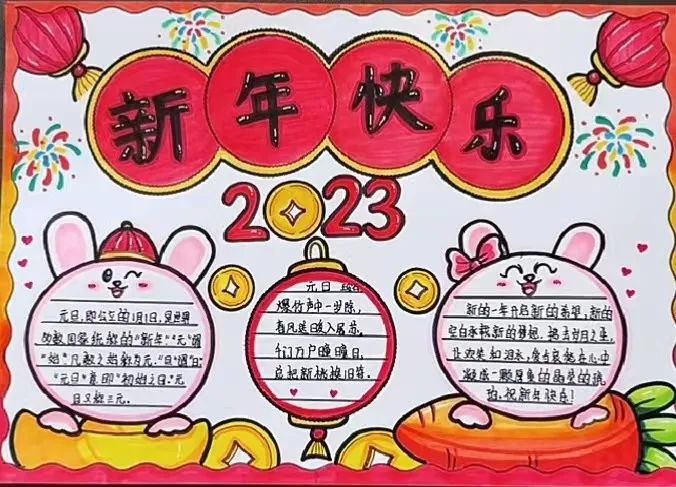 新年快乐
2023
元旦,即公历的1月1日,是世界
多数国家通称的"新年"."元"谓
"始"凡数之始称为元."旦"谓"日"
"元旦"意即"初始之日".元
旦又称三元.
元日
爆竹声中一岁除,
春风送暖入屠苏.
千门万户曈曈日,
总把新桃换旧符.
新的一年开启新的希望,新的
空白承载新的梦想.拂去岁月之尘,
让欢笑和泪水、爱与哀愁在心中
凝成一颗厚重的晶莹的琥
珀.祝新年快乐!